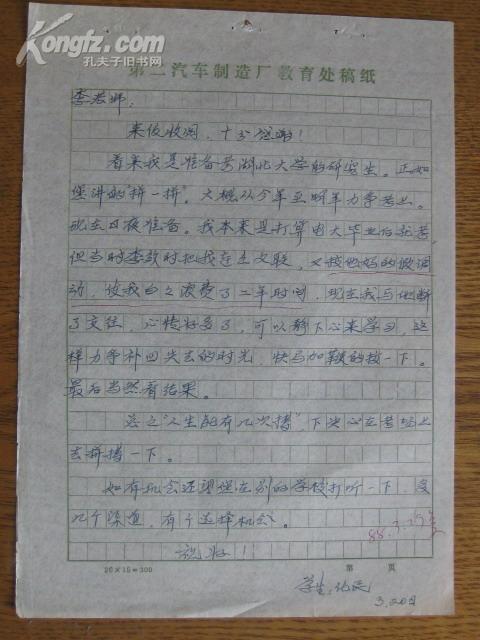 Kongfz.com
孔夫子旧书网
第二汽车制造厂教育处稿纸
李老师：
来信收阅，十分感谢！
看来我是准备考湖北大学的研究生。正如
您讲的“拼一拼”，大概从今年至明年力争考上。
现在日夜准备。我本来是打算电大毕业后就考，
但当时李 时把我 文联，又 他妈的做调
动，使我白之浪费了二年时间，现在我与他断
了交往，心情好多了，可以静下心来学习，这
样力争补回失去的时光，快马加鞭的搏一下。
最后当然看结果。
总之“人生能有几次搏”下决心在考场上
去拼搏一下。
如有机会还望您在别的学校打听一下，多
几个渠道，有个选择机会。
祝好！
88.3.29
20×15=300
第 页
学生：
3.20日